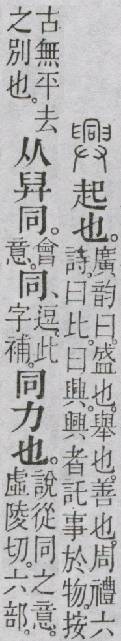 興起也。廣韵曰。盛也。舉也。善也。周禮六詩。曰比。曰興。興者託事於物。按
古無平去之別也。从舁同。會意。同、逗、此字補。同力也。說從同之意。虛陵切。六部。